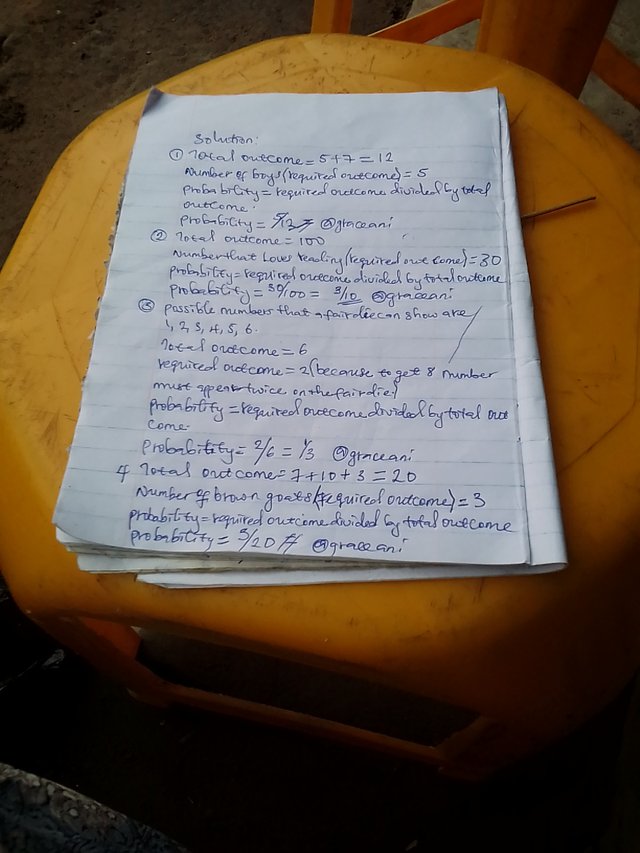 Solution:
① Total outcome = 5+7 = 12
Number of boys (required outcome) = 5
Probability = required outcome divided by total
outcome.
Probability = 5/12 @graceani
② Total outcome = 100
Number that loves reading (required outcome) = 30
probability = required outcome divided by total outcome
probability = 30/100 = 3/10 @graceani
③ possible numbers that a fair die can show are
1, 2, 3, 4, 5, 6.
Total outcome = 6
required outcome = 2 (because to get 8 number
must appear twice on the fair die)
probability = required outcome divided by total out
come.
Probability = 2/6 = 1/3 @graceani
4 Total outcome = 7+10+3 = 20
Number of brown goats (required outcome) = 3
probability = required outcome divided by total outcome
probability = 3/20 @graceani